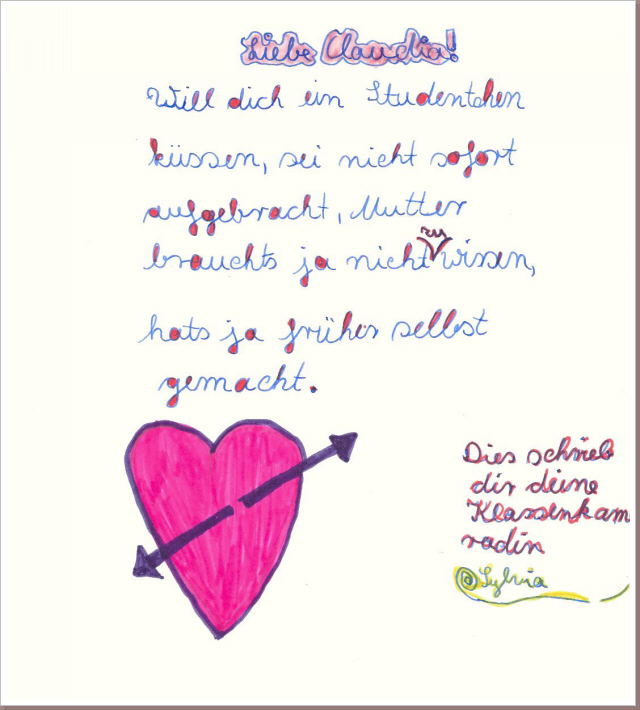 Liebe Claudia!
Will dich ein Studentchen
küssen, sei nicht sofort
aufgebracht, Mutter
brauchts ja nicht zu wissen,
hats ja früher selbst
gemacht.
Dies schrieb
dir deine
Klassenkam
radin
Sylvia